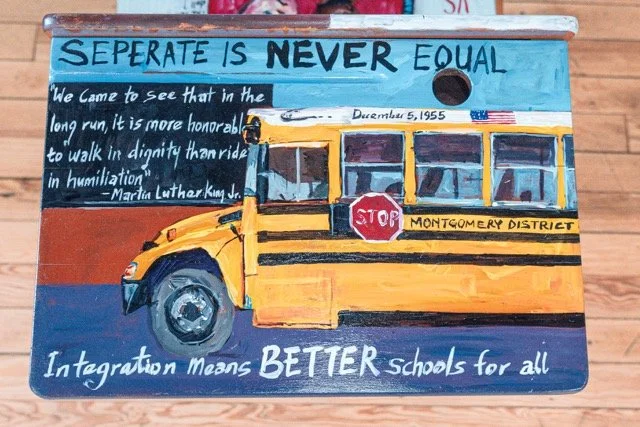 SEPERATE IS NEVER EQUAL
"We Came to see that in the
long run, it is more honorabl
to "walk in dignity than ride
in humiliation"
- Martin Luther King Jr.
December 5, 1955
STOP
MONTGOMERY DISTRICT
Integration Means BETTER schools for all